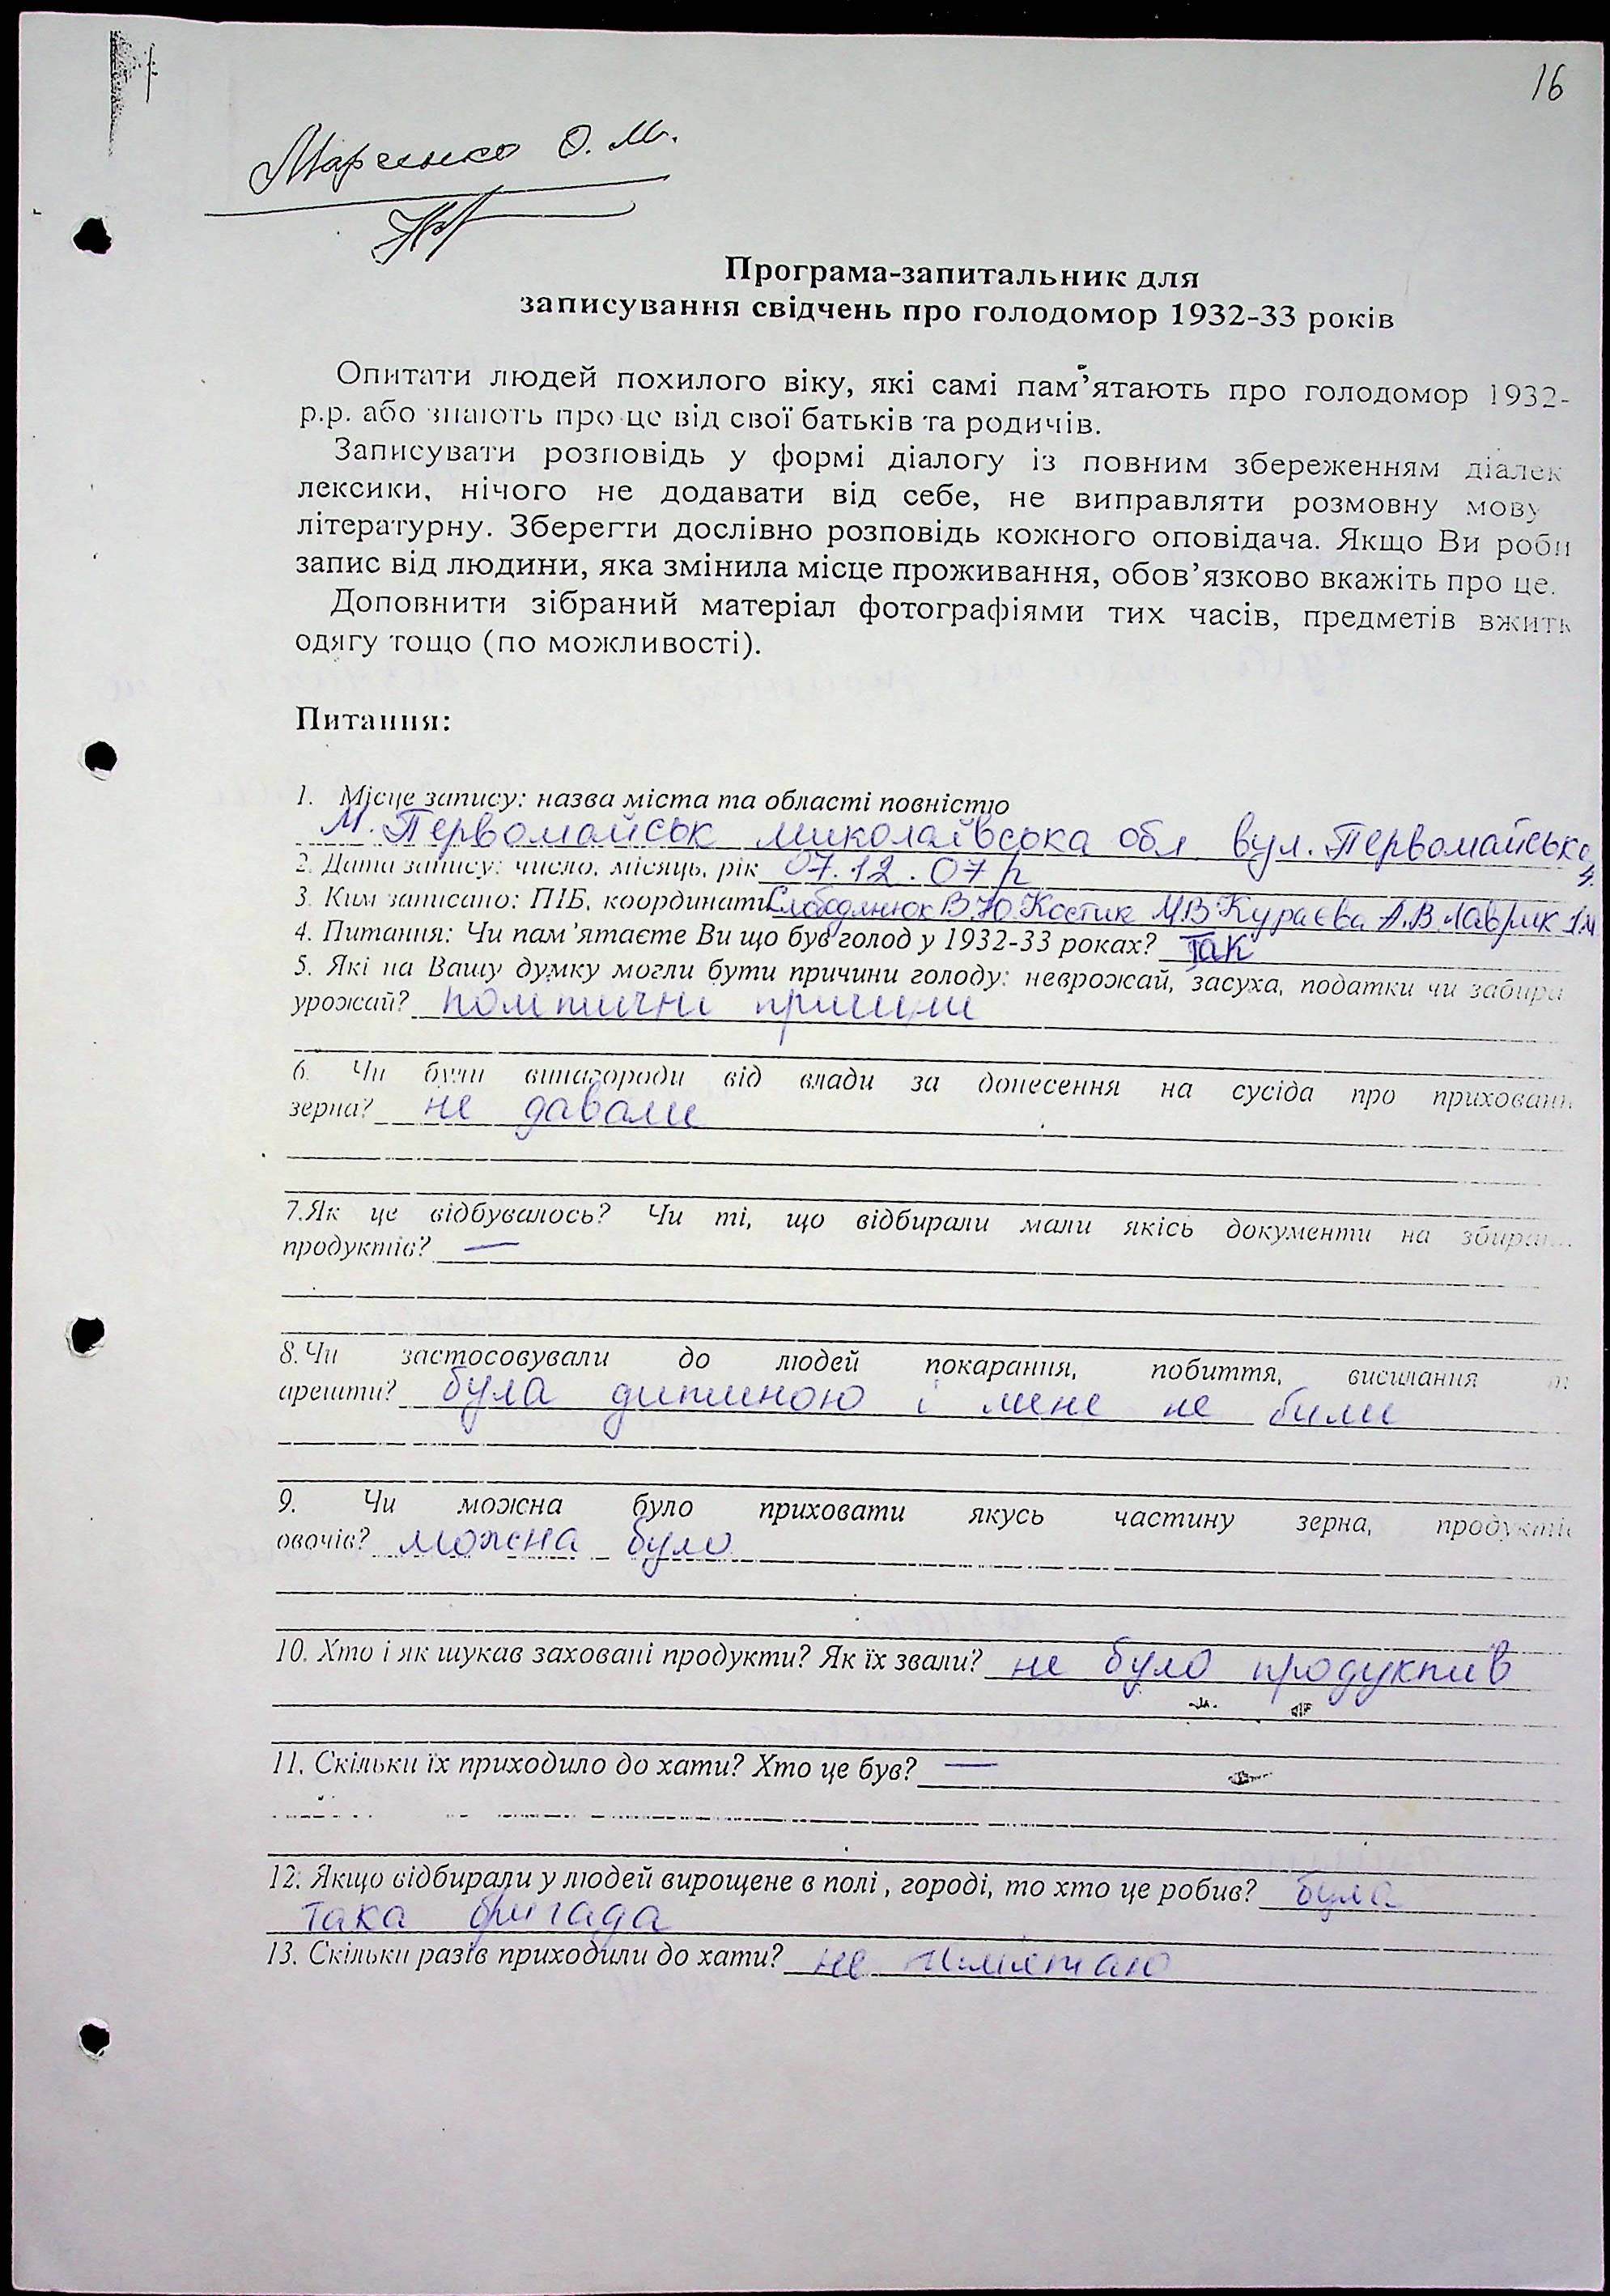 16
Марченко О. М.
Програма-запитальник для
записування свідчень про голодомор 1932-33 років
Опитати людей похилого віку, які самі пам’ятають про голодомор 1932-
р.р. або знають про це від свої батьків та родичів.
Записувати розповідь у формі діалогу із повним збереженням діалек
лексики, нічого не додавати від себе, не виправляти розмовну мову
літературну. Зберегти дослівно розповідь кожного оповідача. Якщо Ви роби
запис від людини, яка змінила місце проживання, обов’язково вкажіть про це.
Доповнити зібраний матеріал фотографіями тих часів, предметів вжитк
одягу тощо (по можливості).
Питання:
1. Місце запису: назва міста та області повністю
м. Первомайськ миколаївська обл вул. Первомайська
2. Дата запису: число, місяць, рік 07.12.07р
3. Ким записано: ПІБ, координати Слободянюк В.Ю. Костик М.В Кураєва А.В Лаврик
4. Питання: Чи пам’ятаєте Ви що був голод у 1932-33 роках? Так
5. Які на Вашу думку могли бути причини голоду: неврожай, засуха, податки чи забира
урожай? політичні причини
6. Чи були винагороди від влади за донесення на сусіда про приховани
зерна? не давали
7.Як це відбувалось? Чи ті, що відбирали мали якісь документи на збиран
продуктів? —
8.Чи застосовували до людей покарання, побиття, висилання т
арешти? була дитиною і мене не били
9. Чи можна було приховати якусь частину зерна, продуктів
овочів? можна було
10. Хто і як шукав заховані продукти? Як їх звали? не було продуктів
11. Скільки їх приходило до хати? Хто це був? —
12. Якщо відбирали у людей вирощене в полі , городі, то хто це робив? була
така бригада
13. Скільки разів приходили до хати? не памятаю